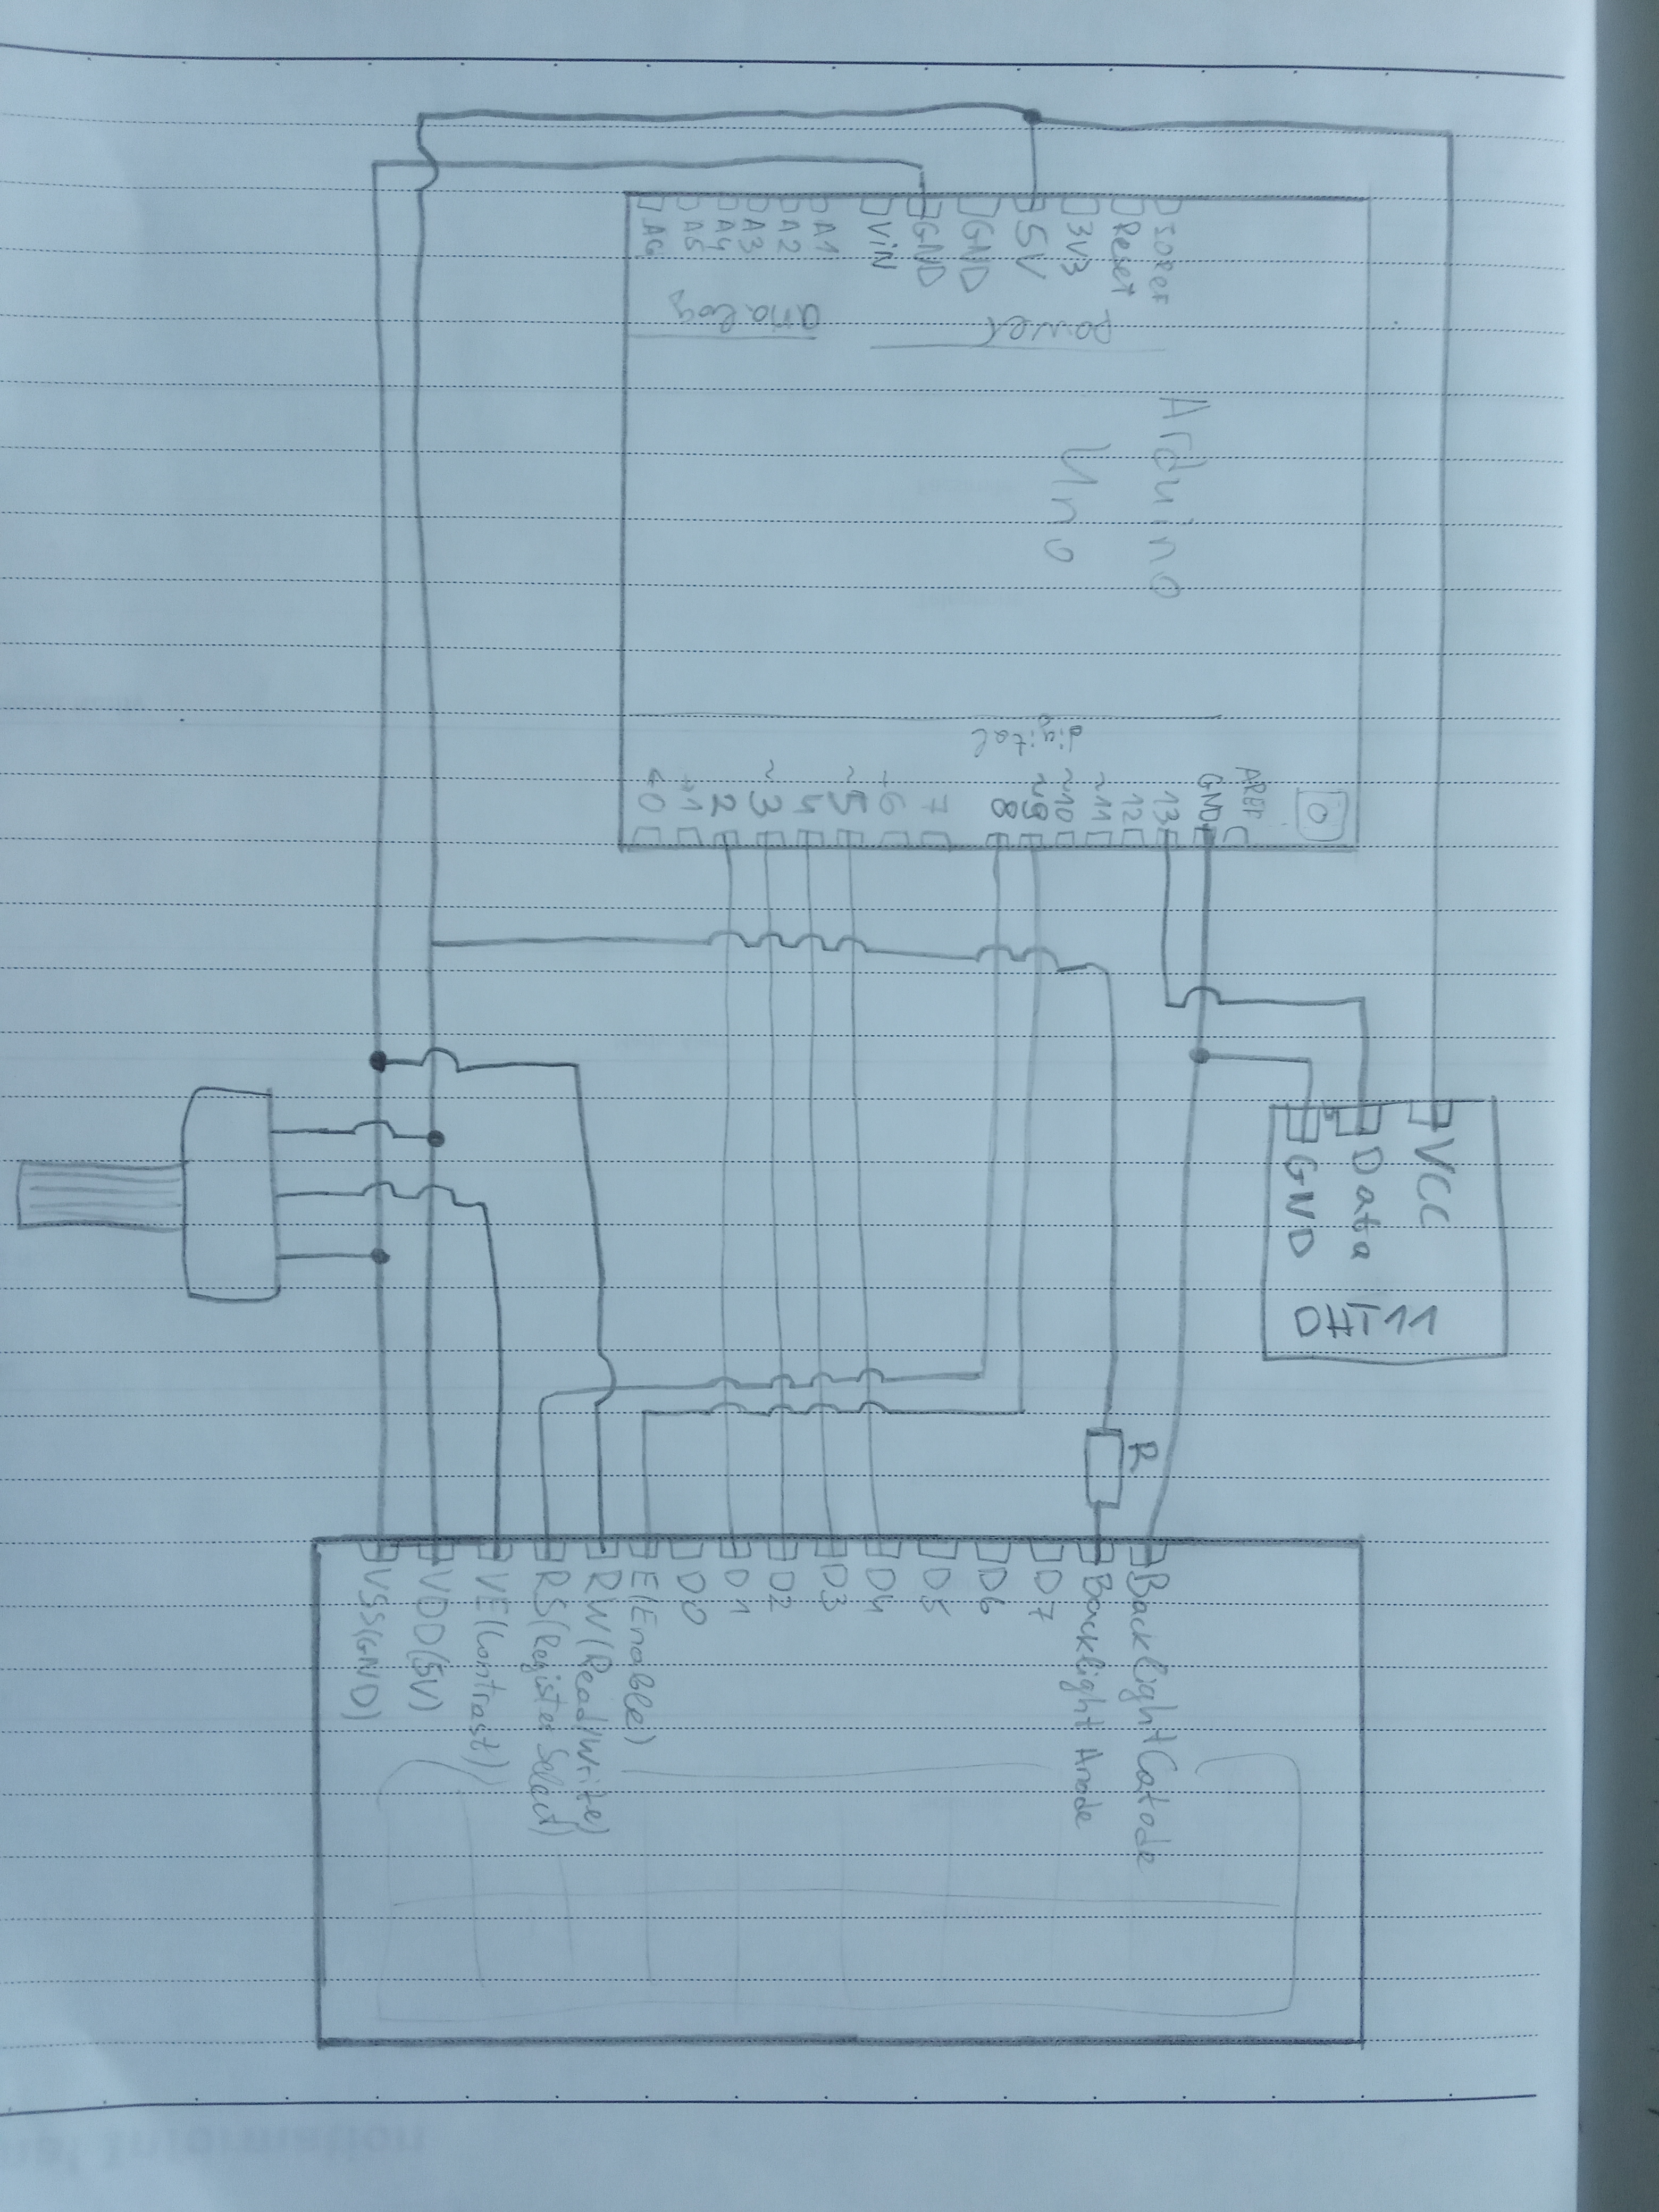 IOREF
Reset
3V3
5V
GND
GND
VIN
A1
A2
A3
A4
A5
Power
analog
Arduino
Uno
digital
AREF
GND
13
12
~11
~10
~9
8
7
5
4
3
2
VCC
Data
GND
DHT11
R
VSS(GND)
VDD(5V)
VE(Contrast)
RS(Register Select)
RW(Read/Write)
E(Enable)
D0
D1
D2
D3
D4
D5
D6
D7
Backlight Anode
Backlight Catode